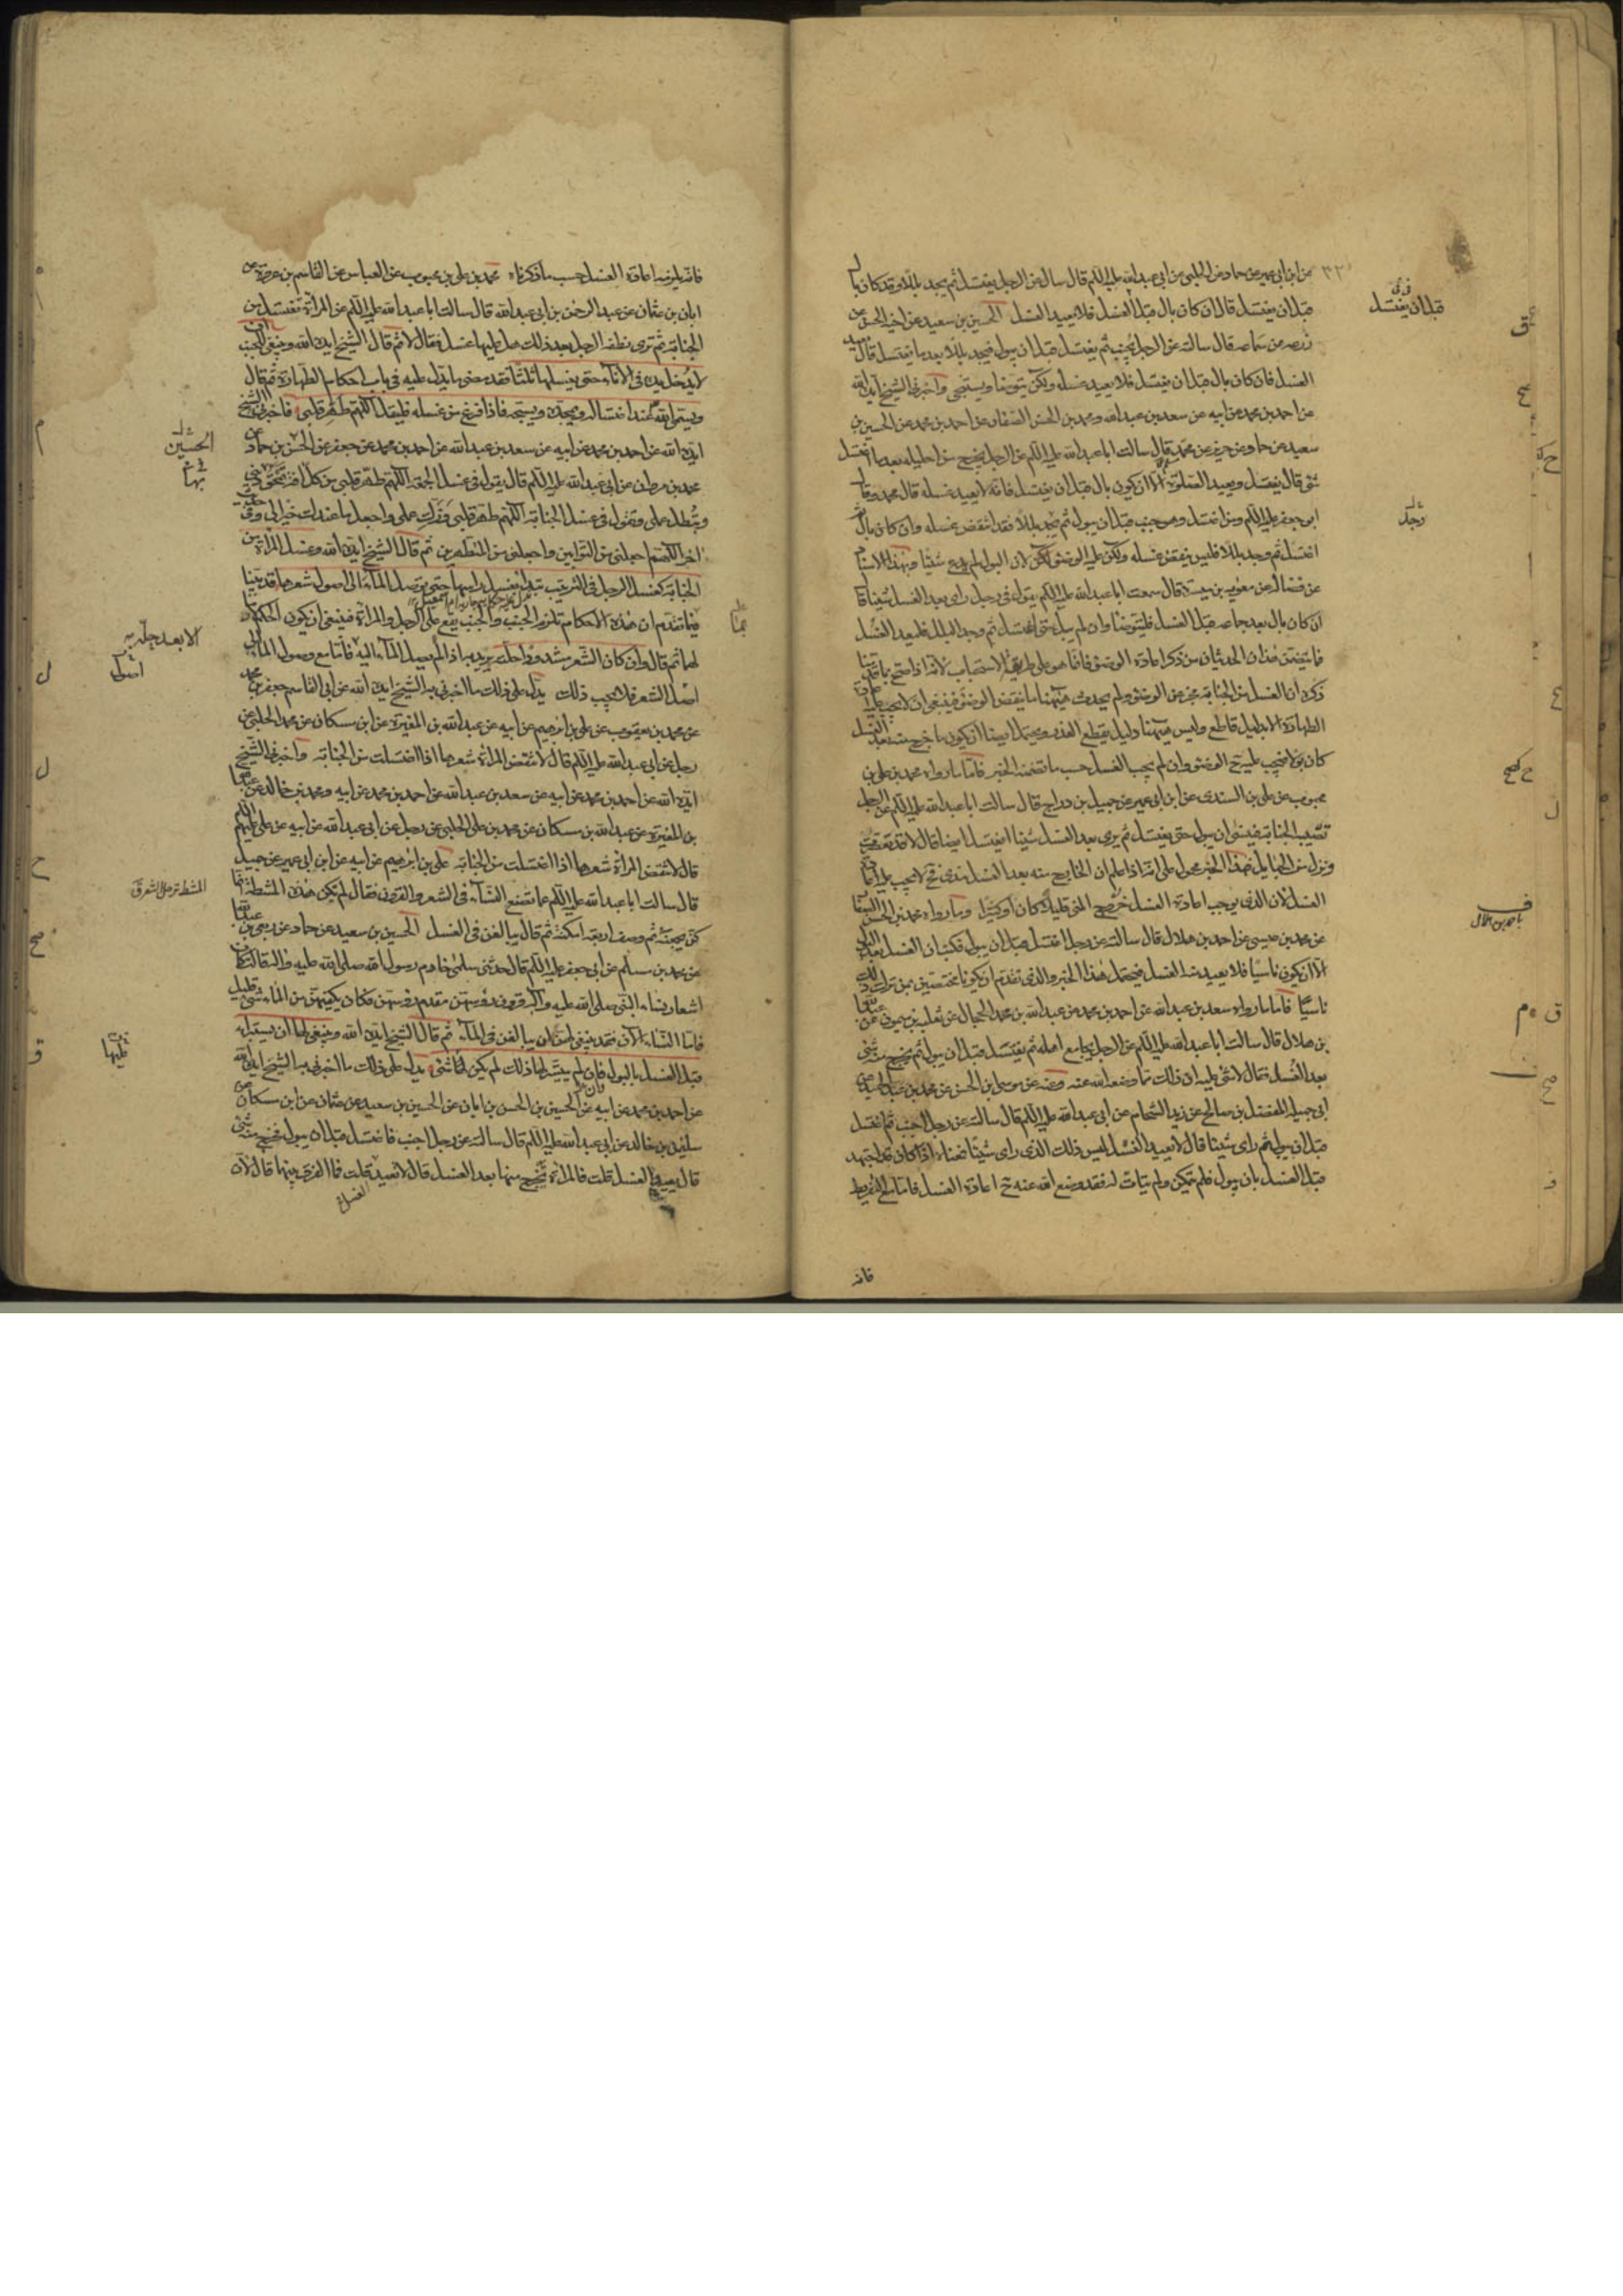 عن ابن ابي عمير عن حماد عن الحلبي عن ابي عبد الله عليه السلم قال سالته عن الرجل يغتسل ثم يجد بللا وقد كان بال
قبل ان يغتسل قال ان كان بال قبل الغسل فلا يعيد الغسل الحسين بن سعيد عن اخيه الحسن عن
زرعه عن سماعه قال سالته عن الرجل يجنب ثم يغتسل قبل ان يبول فيجد بللا بعد ما يغتسل قال يعيد
الغسل فان كان بال قبل ان يغتسل فلا يعيد غسله ولكن يتوضا ويستنجي واخبرني الشيخ ايده الله
عن احمد بن محمد عن ابيه عن سعد بن عبد الله ومحمد بن الحسن الصفار عن احمد بن محمد عن الحسين بن
سعيد عن حماد عن حريز عن محمد قال سالت ابا عبد الله عليه السلم عن الرجل يخرج من احليله بعد ما اغتسل
شئ قال يغتسل ويعيد الصلوة الا ان يكون بال قبل ان يغتسل فانه لا يعيد غسله قال محمد وقال
ابو جعفر عليه السلم ومن اغتسل وهو جنب قبل ان يبول ثم يجد بللا فقد انتقض غسله وان كان بال ثم
اغتسل ثم وجد بللا فليس ينقض غسله ولكن عليه الوضوء لان البول لم يدع شيئا وبهذا الاسناد
عن فضالة عن معوية بن ميسرة قال سمعت ابا عبد الله عليه السلم يقول في رجل راى بعد الغسل شيئا قال
ان كان بال بعد جماعه قبل الغسل فليتوضا وان لم يبل حتى اغتسل ثم وجد البلل فليعد الغسل
فما يتضمن هذان الحديثان من ذكر اعادة الوضوء فانما هو على طريقة الاستحباب لانه اذا صح بما قدمنا
ذكره ان الغسل من الجنابة مجز عن الوضوء ولم يحدث هيهنا ما ينقض الوضوء فينبغي ان لا يجب عليه اعادة
الطهارة الا بدليل قاطع وليس هيهنا دليل يقطع العذر ويحتمل ايضا ان يكون ما خرج منه بعد الغسل
كان بولا فيجب عليه ح الوضوء وان لم يجب الغسل حسب ما تضمنه الخبر فاما ما رواه محمد بن علي بن
محبوب عن علي بن السندي عن ابن ابي عمير عن جميل بن دراج قال سالت ابا عبد الله عليه السلم عن الرجل
تصيبه الجنابة فينسى ان يبول حتى يغتسل ثم يرى بعد الغسل شيئا ايغتسل ايضا قال لا قد تعصرت
ونزل من الحبايل فهذا الخبر محمول على انه اذا علم ان الخارج منه بعد الغسل مذي ح لا يجب عليه اعادة
الغسل لان الذي يوجب اعادة الغسل خروج المني قليلا كان او كثيرا وما رواه محمد بن الحسن الصفار
عن محمد بن عيسى عن احمد بن هلال قال سالته عن رجل اغتسل قبل ان يبول فكتب ان الغسل بعد البول
الا ان يكون ناسيا فلا يعيد منه الغسل فيحتمل هذا الخبر والذي تقدم ان يكونا مختصين بمن ترك ذلك
ناسيا فاما ما رواه سعد بن عبد الله عن احمد بن محمد عن عبد الله بن محمد الحجال عن ثعلبة بن ميمون عن عبد الله
بن هلال قال سالت ابا عبد الله عليه السلم عن الرجل يجامع اهله ثم يغتسل قبل ان يبول ثم يخرج منه شئ
بعد الغسل فقال لا شئ عليه ان ذلك مما وضعه الله عنه وعنه عن موسى بن الحسن عن محمد بن عبد الحميد عن
ابي جميلة المفضل بن صالح عن زيد الشحام عن ابي عبد الله عليه السلم قال سالته عن رجل اجنب ثم اغتسل
قبل ان يبول ثم راى شيئا قال لا يعيد الغسل ليس ذلك الذي راى شيئا فمعناه اذا كان قد اجتهد
قبل الغسل بان يبول فلم يتمكن ولم يتات له فقد وضع الله عنه ح اعادة الغسل فاما مع التفريط
فانه
قبل ان يغتسل
رجل
باحمد بن هلال
فانه يلزمه اعادة الغسل حسب ما ذكرناه محمد بن علي بن محبوب عن العباس عن القاسم بن عروة عن
ابان بن عثمان عن عبد الرحمن بن ابي عبد الله قال سالت ابا عبد الله عليه السلم عن المراة تغتسل من
الجنابة ثم ترى نطفة الرجل بعد ذلك هل عليها غسل فقال لا ثم قال الشيخ ايده الله وينبغي للجنب
لا يدخل يده في الاناء حتى يغسلها ثلثا فقد مضى ما يدل عليه في باب احكام الطهارة ثم قال
ويسمى الله عند اغتساله ويمجده ويسبحه فاذا فرغ من غسله فليقل اللهم طهر قلبي فاخبرني الشيخ
ايده الله عن احمد بن محمد عن ابيه عن سعد بن عبد الله عن احمد بن محمد عن جعفر عن الحسن بن حماد عن
محمد بن مروان عن ابي عبد الله عليه السلم قال يقول في غسل الجمعه اللهم طهر قلبي من كل افة تمحق ديني
وتبطل عملي وتقول في غسل الجنابة اللهم طهر قلبي وزك عملي واجعل ما عندك خيرا لي وفي
اخرى اللهم اجعلني من التوابين واجعلني من المتطهرين ثم قال الشيخ ايده الله وغسل المراة من
الجنابة كغسل الرجل في الترتيب تبدا بغسل راسها حتى يوصل الماء الى اصول شعرها قد بينا
فيما تقدم ان هذه الاحكام تلزم الجنب والجنب يقع على الرجل والمراة فينبغي ان يكون الحكم
لهما ثم قال وان كان الشعر مشدودا حلته يريد به اذا لم يصل الماء اليه فاما مع وصول الماء الى
اصل الشعر فلا يجب ذلك يدل على ذلك ما اخبرني به الشيخ ايده الله عن ابي القاسم جعفر بن محمد
عن محمد بن يعقوب عن علي بن ابرهيم عن ابيه عن عبد الله بن المغيرة عن ابن مسكان عن محمد الحلبي عن
رجل عن ابي عبد الله عليه السلم قال لا تنقض المراة شعرها اذا اغتسلت من الجنابة واخبرني الشيخ
ايده الله عن احمد بن محمد عن ابيه عن سعد بن عبد الله عن احمد بن محمد عن ابيه ومحمد بن خالد عن عبد الله
بن المغيرة عن عبد الله بن مسكان عن محمد بن علي الحلبي عن رجل عن ابي عبد الله عن ابيه عن علي عليهم السلم
قال لا تنقض المراة شعرها اذا اغتسلت من الجنابة علي بن ابرهيم عن ابيه عن ابن ابي عمير عن جميل
قال سالت ابا عبد الله عليه السلم عما تصنع النساء في الشعر والقرون فقال لم تكن هذه المشطة انما
كن يجمعنه ثم وصف اربعة امكنة ثم قال يبالغن في الغسل الحسين بن سعيد عن حماد عن ربعي بن عبد الله
عن محمد بن مسلم عن ابي جعفر عليه السلم قال حدثني سلمى خادم رسول الله صلى الله عليه واله قالت كان
اشعار نساء النبي صلى الله عليه وآله قرون رؤسهن مقدم رؤسهن فكان يكفيهن من الماء شئ قليل
فاما النساء الآن فقد ينبغي لهن ان يبالغن في الماء ثم قال الشيخ ايده الله وينبغي لها ان يستبرئ
قبل الغسل بالبول فان لم يتيسر لها ذلك لم يكن عليها شئ يدل على ذلك ما اخبرني به الشيخ ايده الله
عن احمد بن محمد عن ابيه عن الحسين بن الحسن بن ابان عن الحسين بن سعيد عن عثمان عن ابن مسكان عن
سليمن بن خالد عن ابي عبد الله عليه السلم قال سالته عن رجل اجنب فاغتسل قبل ان يبول فخرج منه شئ
قال يعيد الغسل قلت فالمراة يخرج منها بعد الغسل قال لا تعيد قلت فما الفرق بينهما قال لان
الغسل
الحسين
اصول
عليها